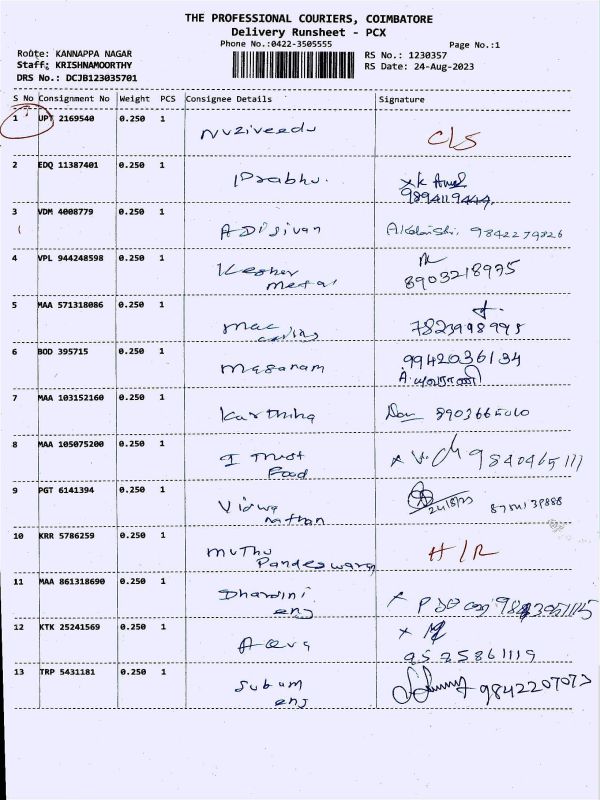 THE PROFESSIONAL COURIERS, COIMBATORE
Delivery Runsheet - PCX
Phone No.:0422-3505555
Page No.:1
Route: KANNAPPA NAGAR
Staff: KRISHNAMOORTHY
DRS No.: DCJB123035701
RS No.: 1230357
RS Date: 24-Aug-2023
S No Consignment No Weight PCS Consignee Details Signature
1 UPT 2169540 0.250 1 Nuziveedu C/S
2 EDQ 11387401 0.250 1 Prabhu.
9894119444
3 VDM 4008779 0.250 1 ADisivan 9842279326
4 VPL 944248598 0.250 1 Kesher
metal 8903218975
5 MAA 571318086 0.250 1 mac
7823998995
6 BOD 395715 0.250 1 masanam 9942036134
7 MAA 103152160 0.250 1 Karthika 8903665010
8 MAA 105075200 0.250 1 I Trust
Food 9840465111
9 PGT 6141394 0.250 1 Viswa
nathan 24/8/23
10 KRR 5786259 0.250 1 muthu
Pandeswara H/R
11 MAA 861318690 0.250 1 Dharini
enj
12 KTK 25241569 0.250 1
9525861119
13 TRP 5431181 0.250 1 Subam
enj 9842207073